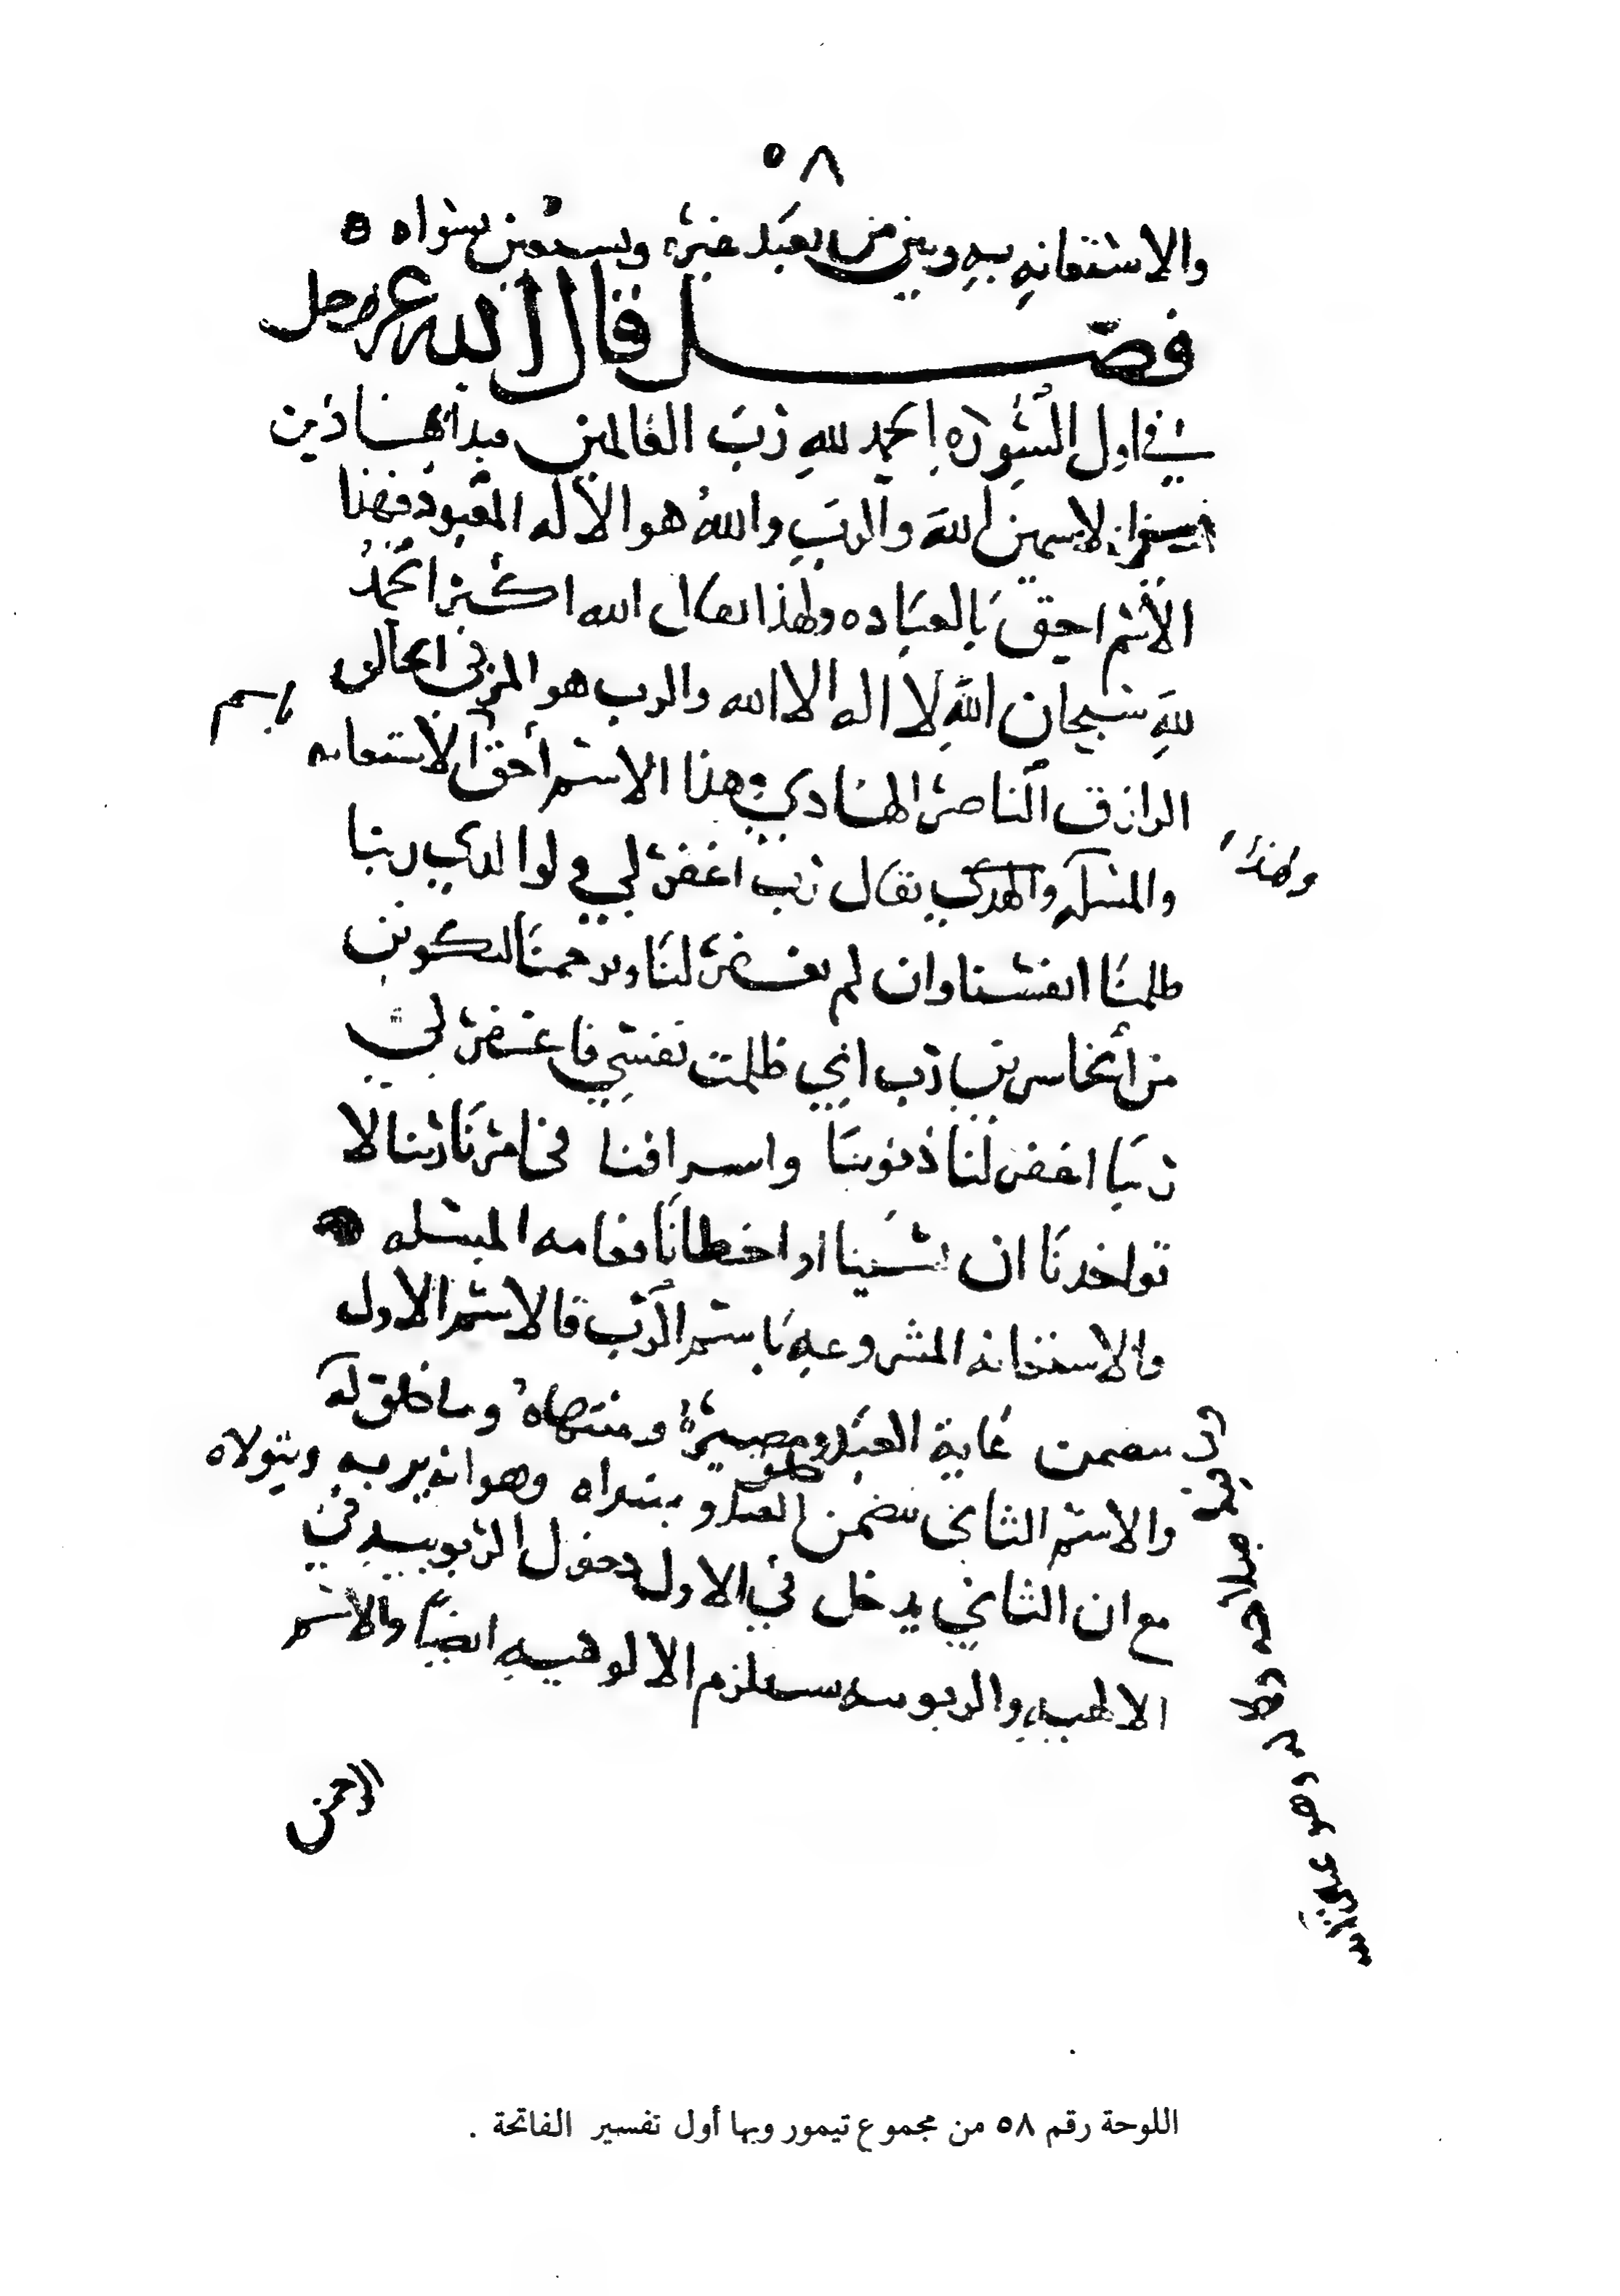 ٥٨
والاستعانه به وبين من يعبد غيره ويستعين بسواه ه
فصل قال الله عز وجل
في اول السوره الحمد لله رب العالمين فبدا بهذين
الاسمين الله والرب والله هو الاله المعبود فهذا
الاسم احق بالعباده ولهذا يقال الله اكبر الحمد
لله سبحان الله لا اله الا الله والرب هو المربي الخالق
الرازق الناصر الهادي وهذا الاسم احق الاستعانه
باسم
والمسله والهدي يقال رب اغفر لي ولوالدي ربنا
ولهذا
ظلمنا انفسنا وان لم تغفر لنا وترحمنا لنكونن
من الخاسرين رب اني ظلمت نفسي فاغفر لي
ربنا اغفر لنا ذنوبنا واسرافنا في امرنا ربنا لا
تواخذنا ان نسينا او اخطانا فعامه المسله
والاستعانه المشروعه باسم الرب فالاسم الاول
يتضمن غاية العبد ومصيره ومنتهاه وما خلق له
والاسم الثاني يتضمن خلق العبد ومبتداه وهو انه يربه ويتولاه
مع ان الثاني يدخل في الاول دخول الربوبيه في
الالهيه والربوبيه يستلزم الالوهيه ايضا والاسم
الرحمن
اللوحة رقم ٥٨ من مجموع تيمور وبها أول تفسير الفاتحة .